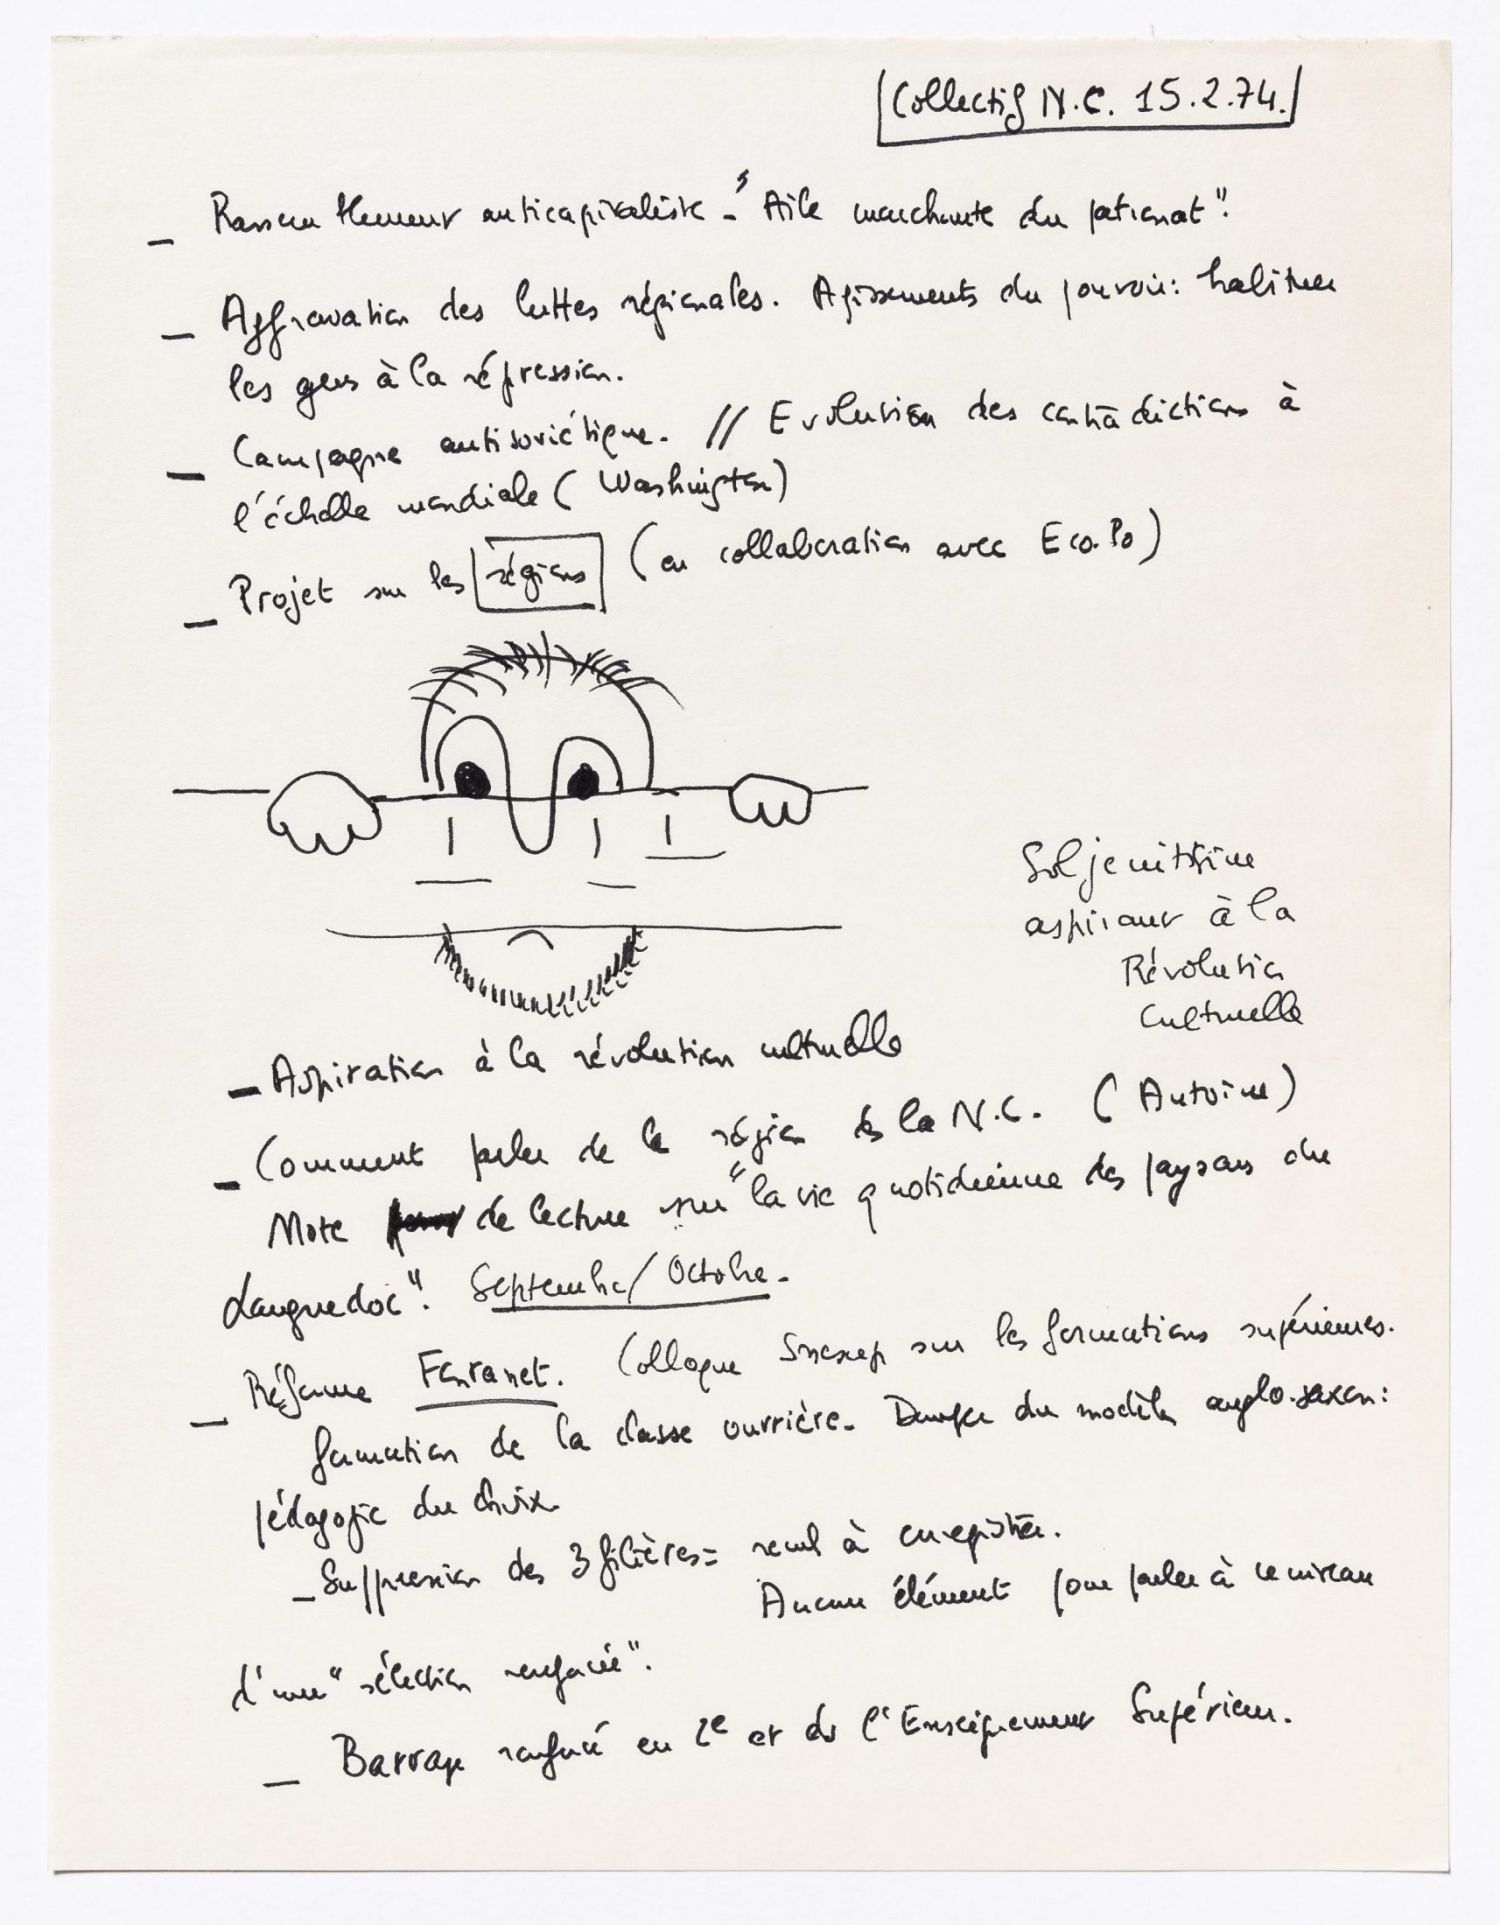 Collectif N.C. 15.2.74.
_ Rassemblement anticapitaliste - "Aile marchante du patronat".
_ Aggravation des luttes régionales. Agissements du pouvoir: habituer
les gens à la répression.
_ Campagne antisoviétique. // Evolution des contradictions à
l'échelle mondiale (Washington)
_ Projet sur les régions (en collaboration avec Eco. Po)
Soljenitsine
aspirant à la
Révolution
Culturelle
_ Aspiration à la révolution culturelle
_ Comment parler de la région ds la N.C. (Antoine)
Note de lecture sur "la vie quotidienne des paysans du
Languedoc". Septembre/Octobre.
_ Réforme Fontanet. Colloque Snesup sur les formations supérieures.
formation de la classe ouvrière. Danger du modèle anglo-saxon:
pédagogie du choix.
_ Suppression des 3 filières = recul à enregistrer.
Aucun élément pour parler à ce niveau
d'une "sélection renforcée".
_ Barrage renforcé en 2e et ds l'Enseignement Supérieur.